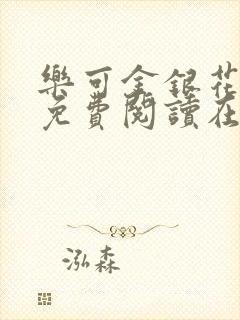 樂可金銀花
免費閱讀在
泓森